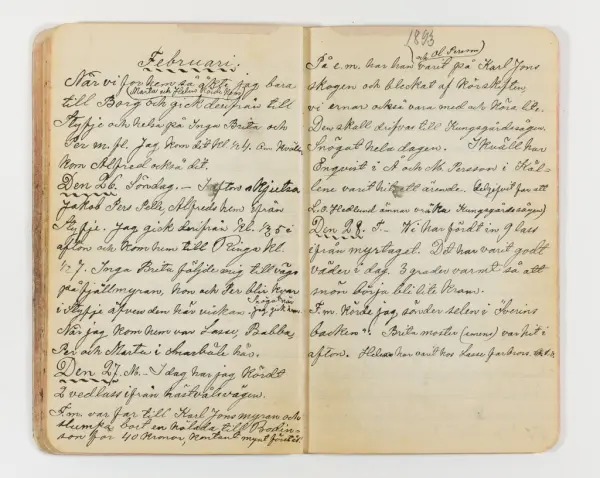 Februari.
När vi for hem så åkte jag bara
(Marta och Helena körde hem)
till Borg och gick derifrån till
Styfje och helsa på Inga Brita och
Per m. fl. Jag kom dit kl ½4. Om kvällen
kom Alfred också dit.
Den 26. Söndag. — I aftons skjutsa
Jakos Pers Pelle, Alfreds hem ifrån
Styfje. Jag gick derifrån kl. ½5 i
afton och kom hem till Ringa kl.
½7. Inga Brita följde mig till vägs
på fjällmyran, hon och Per blir kvar
i Styfje äfven den här veckan. Snögat när
jag gick hem.
När jag kom hem var Lasse, Babba,
Per och Marta i Anarbäle här.
Den 27. M. — I dag har jag kördt
2 vedlass ifrån hästvålsvägen.
F.m. var far till Karl Jons myran och
slumpa bort en till Bodin-
son för 40 kronor, kontant mynt
1893
På e.m. har han varit på Karl Jons
och Ol Persson)
skogen och bleckat af Körskiften,
vi ernar också vara med och köra lite.
Den skall drifvas till Kungsgårdssågen.
Snögat hela dagen. I kväll har
Engvist i Å och M. Persson i Käl-
lene varit hit all ärende. för att
L.O. Hedlund ännar vräka Kungsgårdssågen)
Den 28. T. — Vi har fördt in 9 lass
ifrån myrtaget. Det har varit godt
väder i dag. 3 grader varmt så att
snön börja bli lite kram.
F.m. körde jag sönder selen i Överins
backen". Brita moster (annns) var hit i
afton. Helena har varit hos Lasse farbrors.